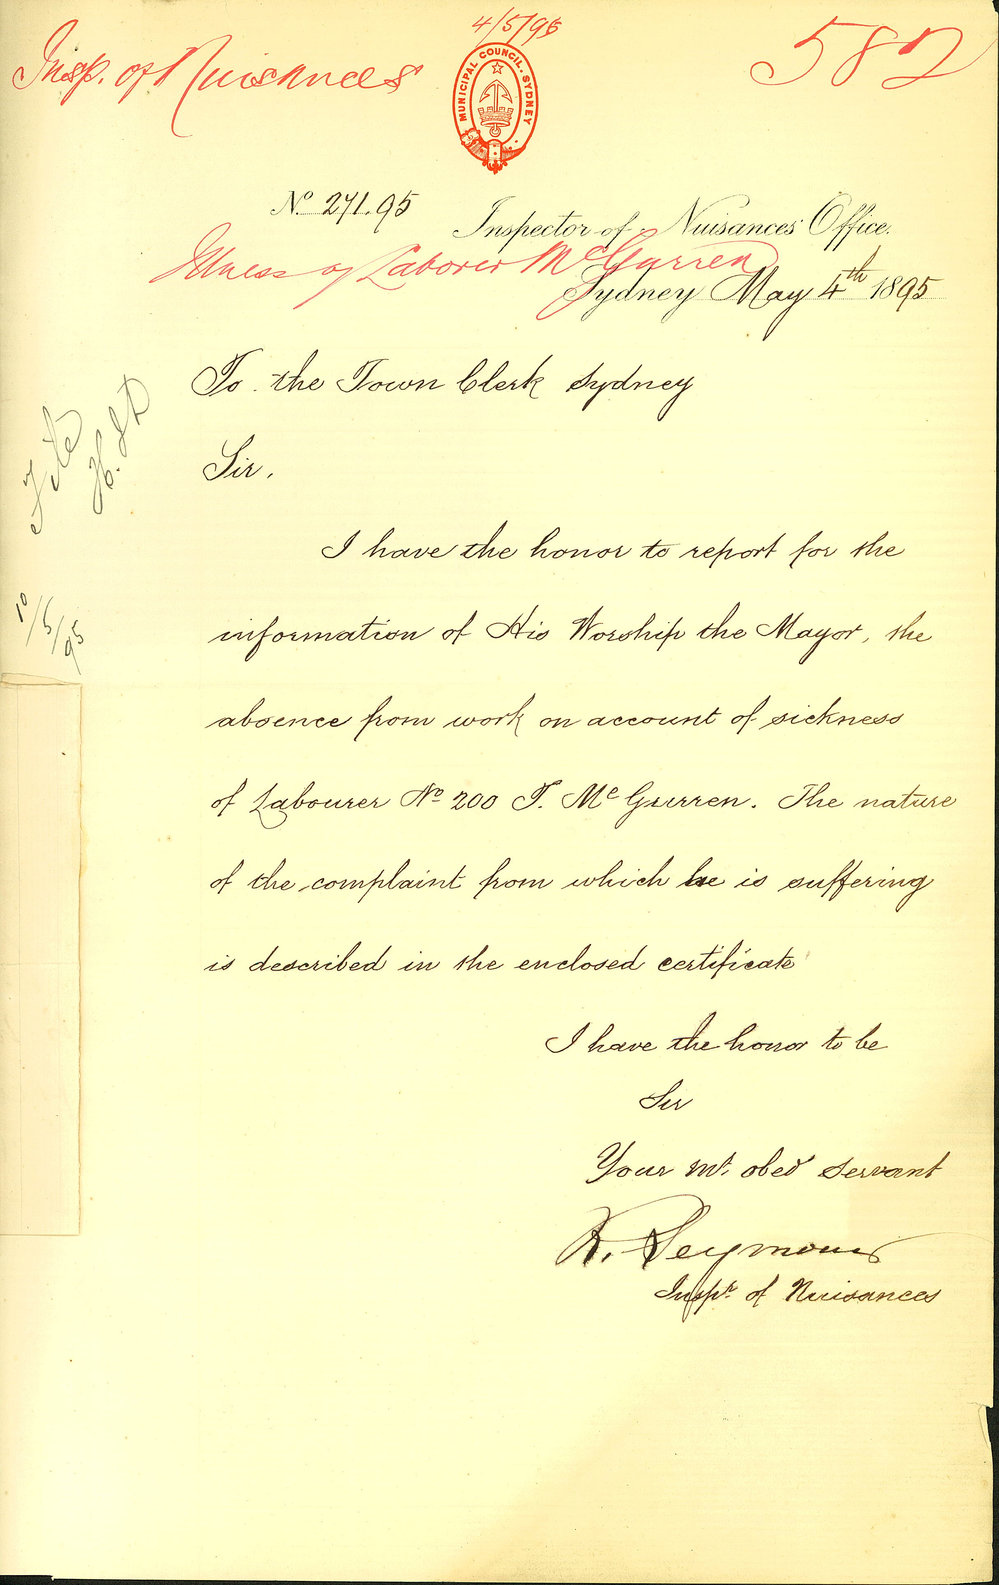 4/5/95
Insp. of Nuisances
582
MUNICIPAL COUNCIL. SYDNEY
No. 271.95
Inspector of Nuisances' Office.
Illness of Laborer McGurren
Sydney May 4th 1895
To the Town Clerk Sydney
File
10/5/95
Sir,
I have the honor to report for the
information of His Worship the Mayor, the
absence from work on account of sickness
of Labourer No 200 T. McGurren. The nature
of the complaint from which he is suffering
is described in the enclosed certificate
I have the honor to be
Sir
Your mt. obed servant
R. Seymour
Inspr. of Nuisances